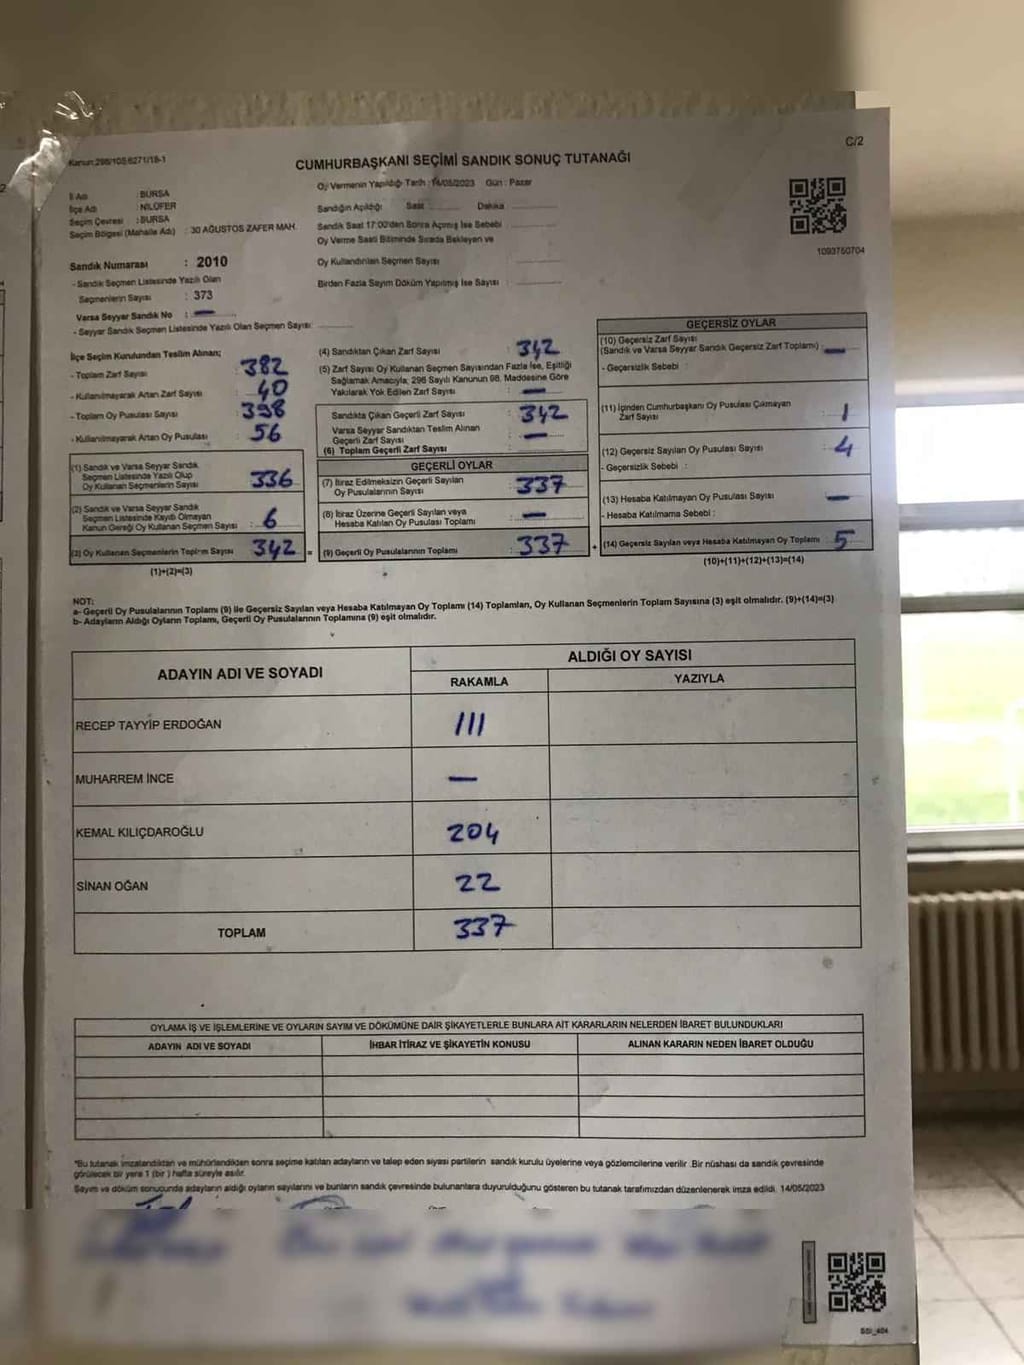 C/2
Kanun:298/105 6271/18-1
CUMHURBAŞKANI SEÇİMİ SANDIK SONUÇ TUTANAĞI
İl Adı : BURSA
İlçe Adı : NİLÜFER
Seçim Çevresi : BURSA
Seçim Bölgesi (Mahalle Adı) : 30 AĞUSTOS ZAFER MAH.
Sandık Numarası : 2010
- Sandık Seçmen Listesinde Yazılı Olan
Seçmenlerin Sayısı : 373
Varsa Seyyar Sandık No : —
- Seyyar Sandık Seçmen Listesinde Yazılı Olan Seçmen Sayısı:
Oy Vermenin Yapıldığı Tarih : 14/05/2023 Gün : Pazar
Sandığın Açıldığı Saat Dakika
Sandık Saat 17:00'den Sonra Açmış İse Sebebi :
Oy Verme Saati Bitiminde Sırada Bekleyen ve
Oy Kullandırılan Seçmen Sayısı :
Birden Fazla Sayım Döküm Yapılmış İse Sayısı :
1093750704
İlçe Seçim Kurulundan Teslim Alınan;
- Toplam Zarf Sayısı : 382
- Kullanılmayarak Artan Zarf Sayısı : 40
- Toplam Oy Pusulası Sayısı : 398
- Kullanılmayarak Artan Oy Pusulası : 56
(1) Sandık ve Varsa Seyyar Sandık
Seçmen Listesinde Yazılı Olup
Oy Kullanan Seçmenlerin Sayısı : 336
(2) Sandık ve Varsa Seyyar Sandık
Seçmen Listesinde Kayıtlı Olmayan
Kanun Gereği Oy Kullanan Seçmen Sayısı : 6
(3) Oy Kullanan Seçmenlerin Toplam Sayısı : 342 =
(1)+(2)=(3)
(4) Sandıktan Çıkan Zarf Sayısı : 342
(5) Zarf Sayısı Oy Kullanan Seçmen Sayısından Fazla İse, Eşitliği
Sağlamak Amacıyla, 298 Sayılı Kanunun 98. Maddesine Göre
Yakılarak Yok Edilen Zarf Sayısı : —
Sandıkta Çıkan Geçerli Zarf Sayısı : 342
Varsa Seyyar Sandıktan Teslim Alınan
Geçerli Zarf Sayısı : —
(6) Toplam Geçerli Zarf Sayısı :
GEÇERLİ OYLAR
(7) İtiraz Edilmeksizin Geçerli Sayılan
Oy Pusulalarının Sayısı : 337
(8) İtiraz Üzerine Geçerli Sayılan veya
Hesaba Katılan Oy Pusulası Toplamı : —
(9) Geçerli Oy Pusulalarının Toplamı : 337 +
GEÇERSİZ OYLAR
(10) Geçersiz Zarf Sayısı
(Sandık ve Varsa Seyyar Sandık Geçersiz Zarf Toplamı) : —
- Geçersizlik Sebebi :
(11) İçinden Cumhurbaşkanı Oy Pusulası Çıkmayan
Zarf Sayısı : 1
(12) Geçersiz Sayılan Oy Pusulası Sayısı : 4
- Geçersizlik Sebebi :
(13) Hesaba Katılmayan Oy Pusulası Sayısı : —
- Hesaba Katılmama Sebebi :
(14) Geçersiz Sayılan veya Hesaba Katılmayan Oy Toplamı : 5
(10)+(11)+(12)+(13)=(14)
NOT:
a- Geçerli Oy Pusulalarının Toplamı (9) ile Geçersiz Sayılan veya Hesaba Katılmayan Oy Toplamı (14) Toplamları, Oy Kullanan Seçmenlerin Toplam Sayısına (3) eşit olmalıdır. (9)+(14)=(3)
b- Adayların Aldığı Oyların Toplamı, Geçerli Oy Pusulalarının Toplamına (9) eşit olmalıdır.
ADAYIN ADI VE SOYADI ALDIĞI OY SAYISI
RAKAMLA YAZIYLA
RECEP TAYYİP ERDOĞAN 111
MUHARREM İNCE —
KEMAL KILIÇDAROĞLU 204
SİNAN OĞAN 22
TOPLAM 337
OYLAMA İŞ VE İŞLEMLERİNE VE OYLARIN SAYIM VE DÖKÜMÜNE DAİR ŞİKAYETLERLE BUNLARA AİT KARARLARIN NELERDEN İBARET BULUNDUKLARI
ADAYIN ADI VE SOYADI İHBAR İTİRAZ VE ŞİKAYETİN KONUSU ALINAN KARARIN NEDEN İBARET OLDUĞU
*Bu tutanak imzalandıktan ve mühürlendikten sonra seçime katılan adayların ve talep eden siyasi partilerin sandık kurulu üyelerine veya gözlemcilerine verilir .Bir nüshası da sandık çevresinde
görülecek bir yere 1 (bir ) hafta süreyle asılır.
Sayım ve döküm sonucunda adayların aldığı oyların sayılarını ve bunların sandık çevresinde bulunanlara duyurulduğunu gösteren bu tutanak tarafımızdan düzenlenerek imza edildi. 14/05/2023